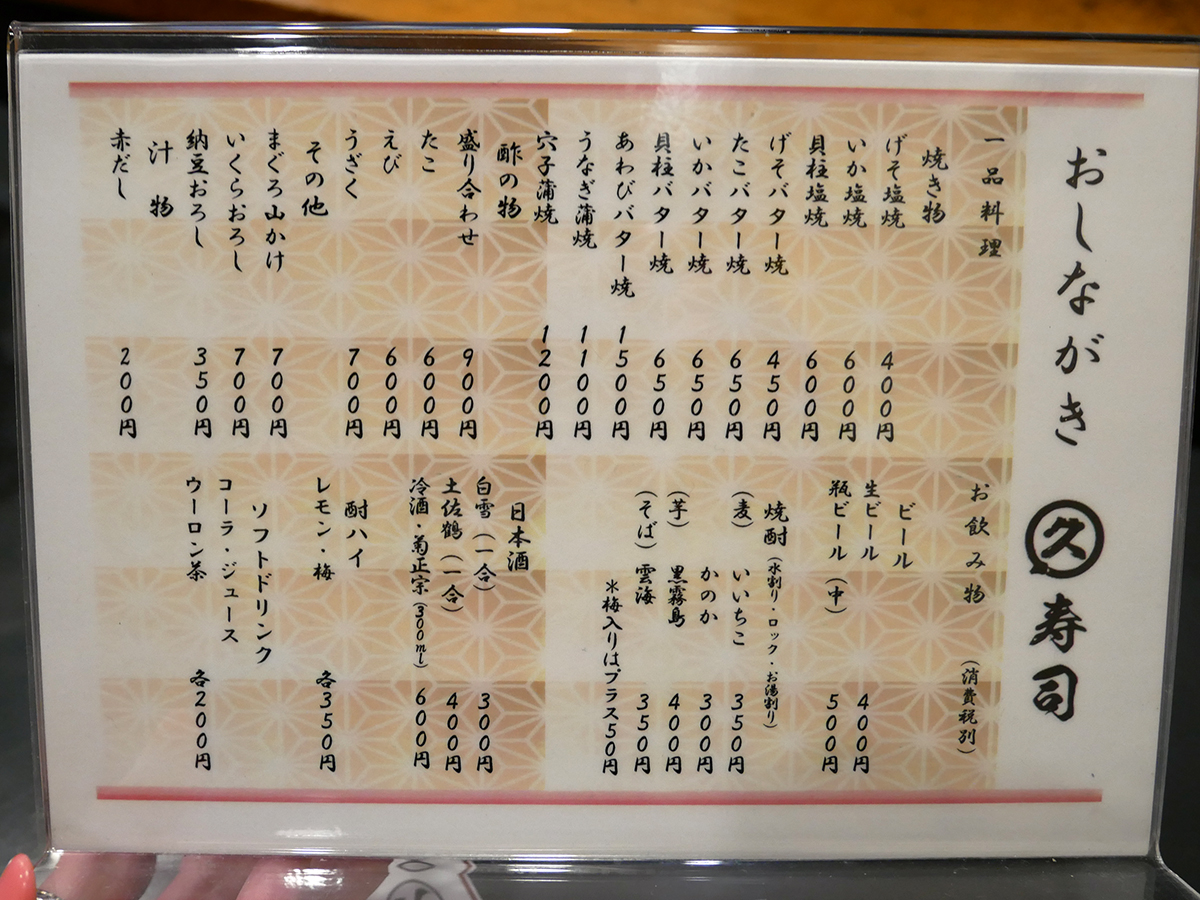 おしながき 久 寿司
一品料理
焼き物
げそ塩焼 400円
いか塩焼 600円
貝柱塩焼 600円
げそバター焼 450円
たこバター焼 650円
いかバター焼 650円
貝柱バター焼 650円
あわびバター焼 1500円
うなぎ蒲焼 1100円
穴子蒲焼 1200円
酢の物
盛り合わせ 900円
たこ 600円
えび 600円
うざく 700円
その他
まぐろ山かけ 700円
いくらおろし 700円
納豆おろし 350円
汁物
赤だし 200円
お飲み物 (消費税別)
ビール
生ビール 400円
瓶ビール(中) 500円
焼酎(水割り・ロック・お湯割り)
(麦) いいちこ 350円
かのか 300円
(芋) 黒霧島 400円
(そば) 雲海 350円
*梅入りは、プラス50円
日本酒
白雪(一合) 300円
土佐鶴(一合) 400円
冷酒・菊正宗(300ml) 600円
酎ハイ
レモン・梅 各350円
ソフトドリンク
コーラ・ジュース
ウーロン茶 各200円